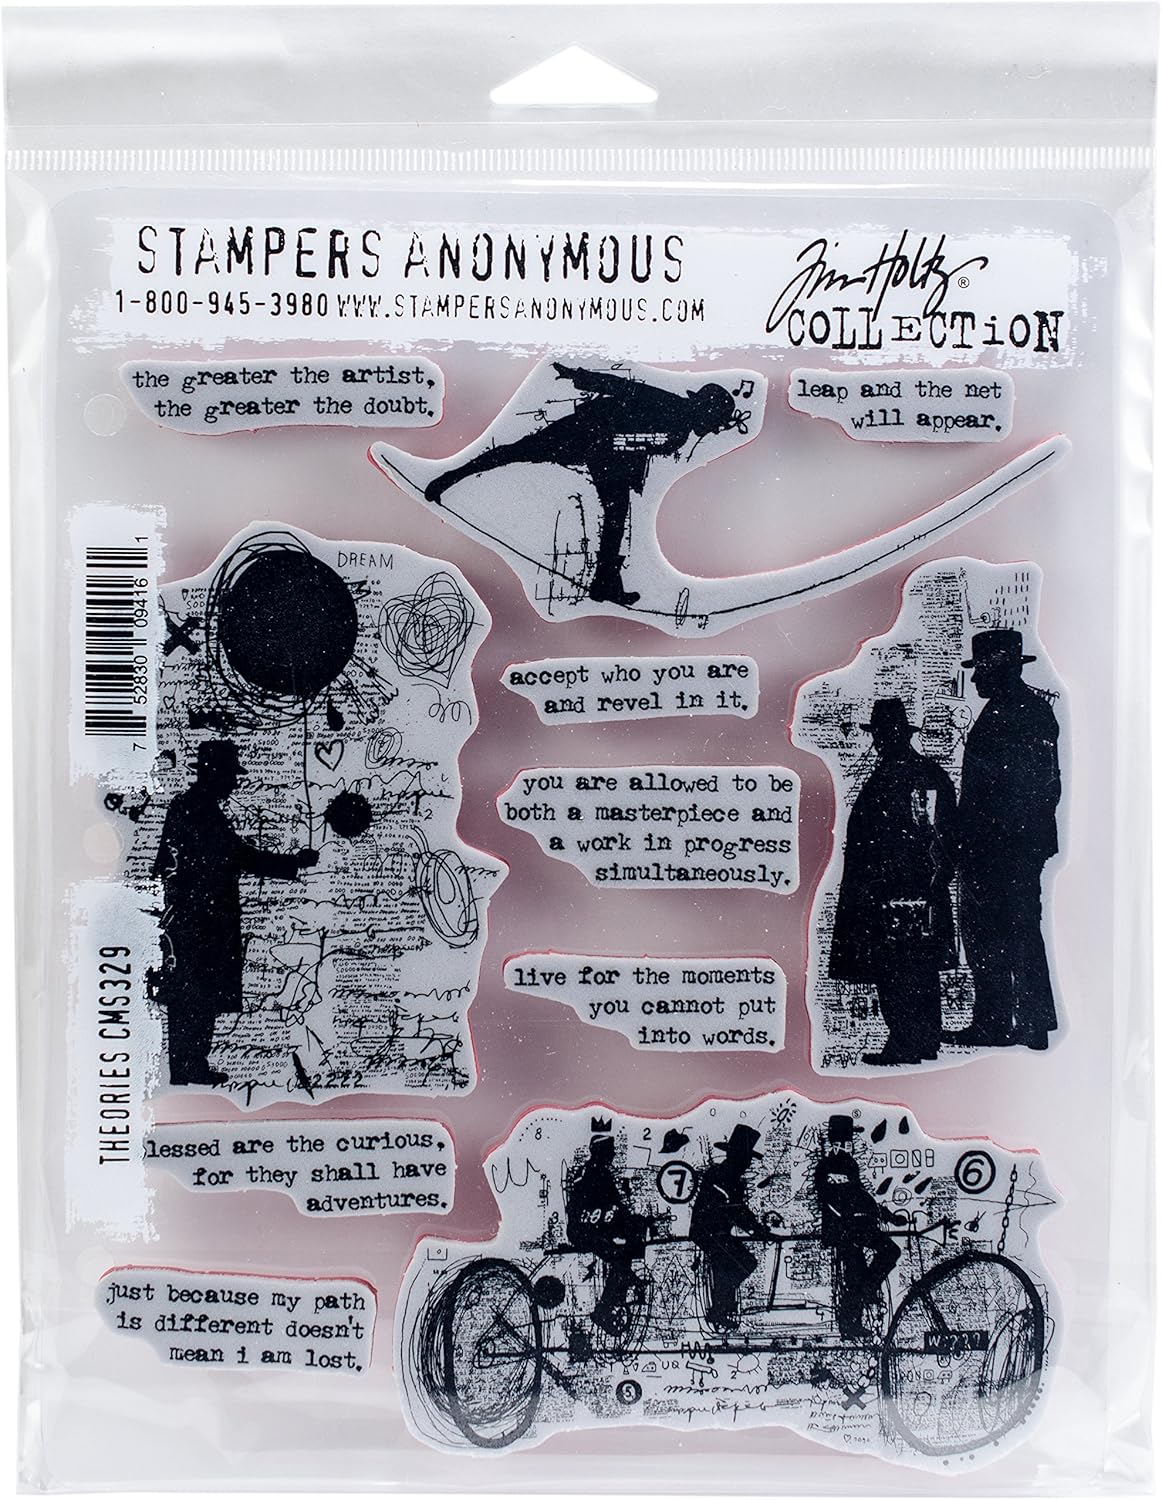 STAMPERS ANONYMOUS
1-800-945-3980 WWW.STAMPERSANONYMOUS.COM
Tim Holtz®
COLLECTiON
the greater the artist,
the greater the doubt.
leap and the net
will appear.
DREAM
7 52830 09416 1
accept who you are
and revel in it.
you are allowed to be
both a masterpiece and
a work in progress
simultaneously.
live for the moments
you cannot put
into words.
THEORIES CMS329
lessed are the curious,
for they shall have
adventures.
just because my path
is different doesn't
mean i am lost.
8
2
7
6
5
2222